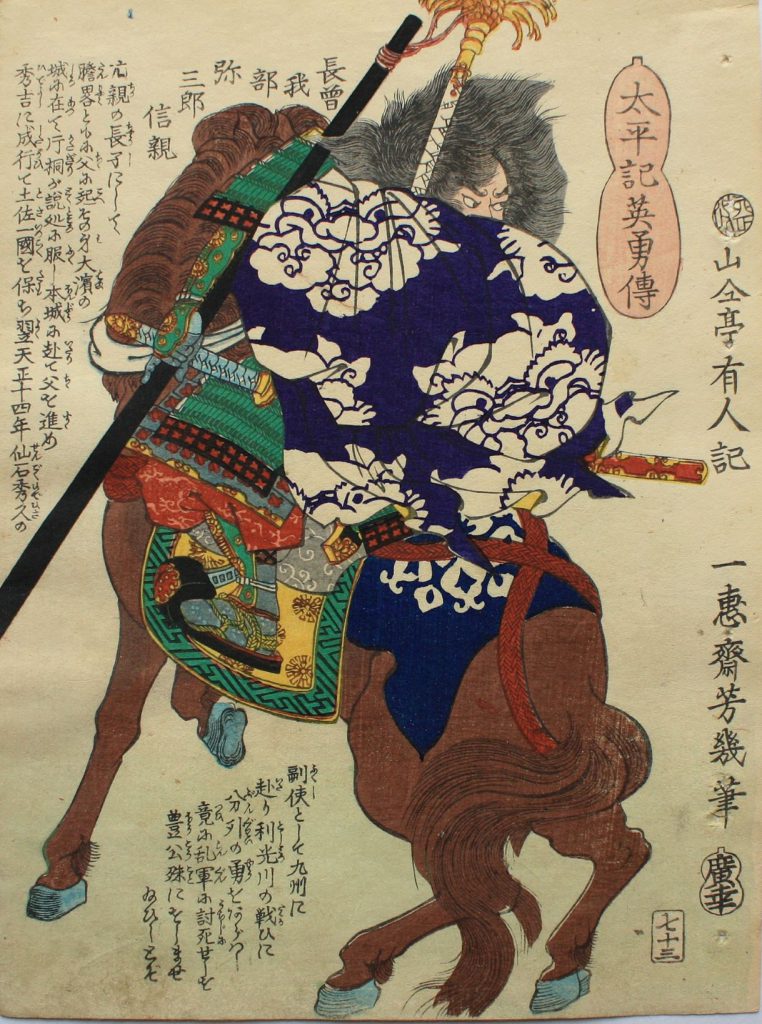 太平記英勇傳
山々亭有人記
一惠齋芳幾筆
廣幸
七十三
長曾
我
部
弥
三郎
信親
元親の長子にして
膽畧ともに父に起をのぞ大濱の
城に在て片桐が説処に服し本城に赴て父を進め
秀吉に成行て土佐一國を保ち翌天正十四年仙石秀久の
副使として九州に
赴り利光川の戦ひに
分列の勇をあらはし
竟に乱軍に討死せしを
豊公殊に